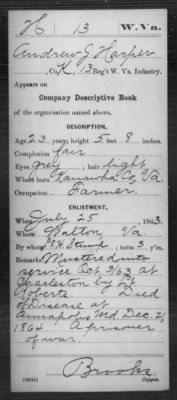 H | 13 | W. Va.
Andrew J Harper
, Co. K, 13 Reg't W. Va. Infantry.
Appears on
Company Descriptive Book
of the organization named above.
DESCRIPTION.
Age 23 years; height 5 feet 8 inches.
Complexion fair
Eyes grey; hair light
Where born Kanawha Co, Va
Occupation Farmer
ENLISTMENT.
When July 25, 1863.
Where Walton Va.
By whom; term 3 y'rs.
Remarks Mustered into
service Oct 3/63 at
Charleston by Lt
Roberts. Died
of Disease at
Annapolis Md. Dec. 21
1864 A prisoner
of war.
Brooks
Copyist.